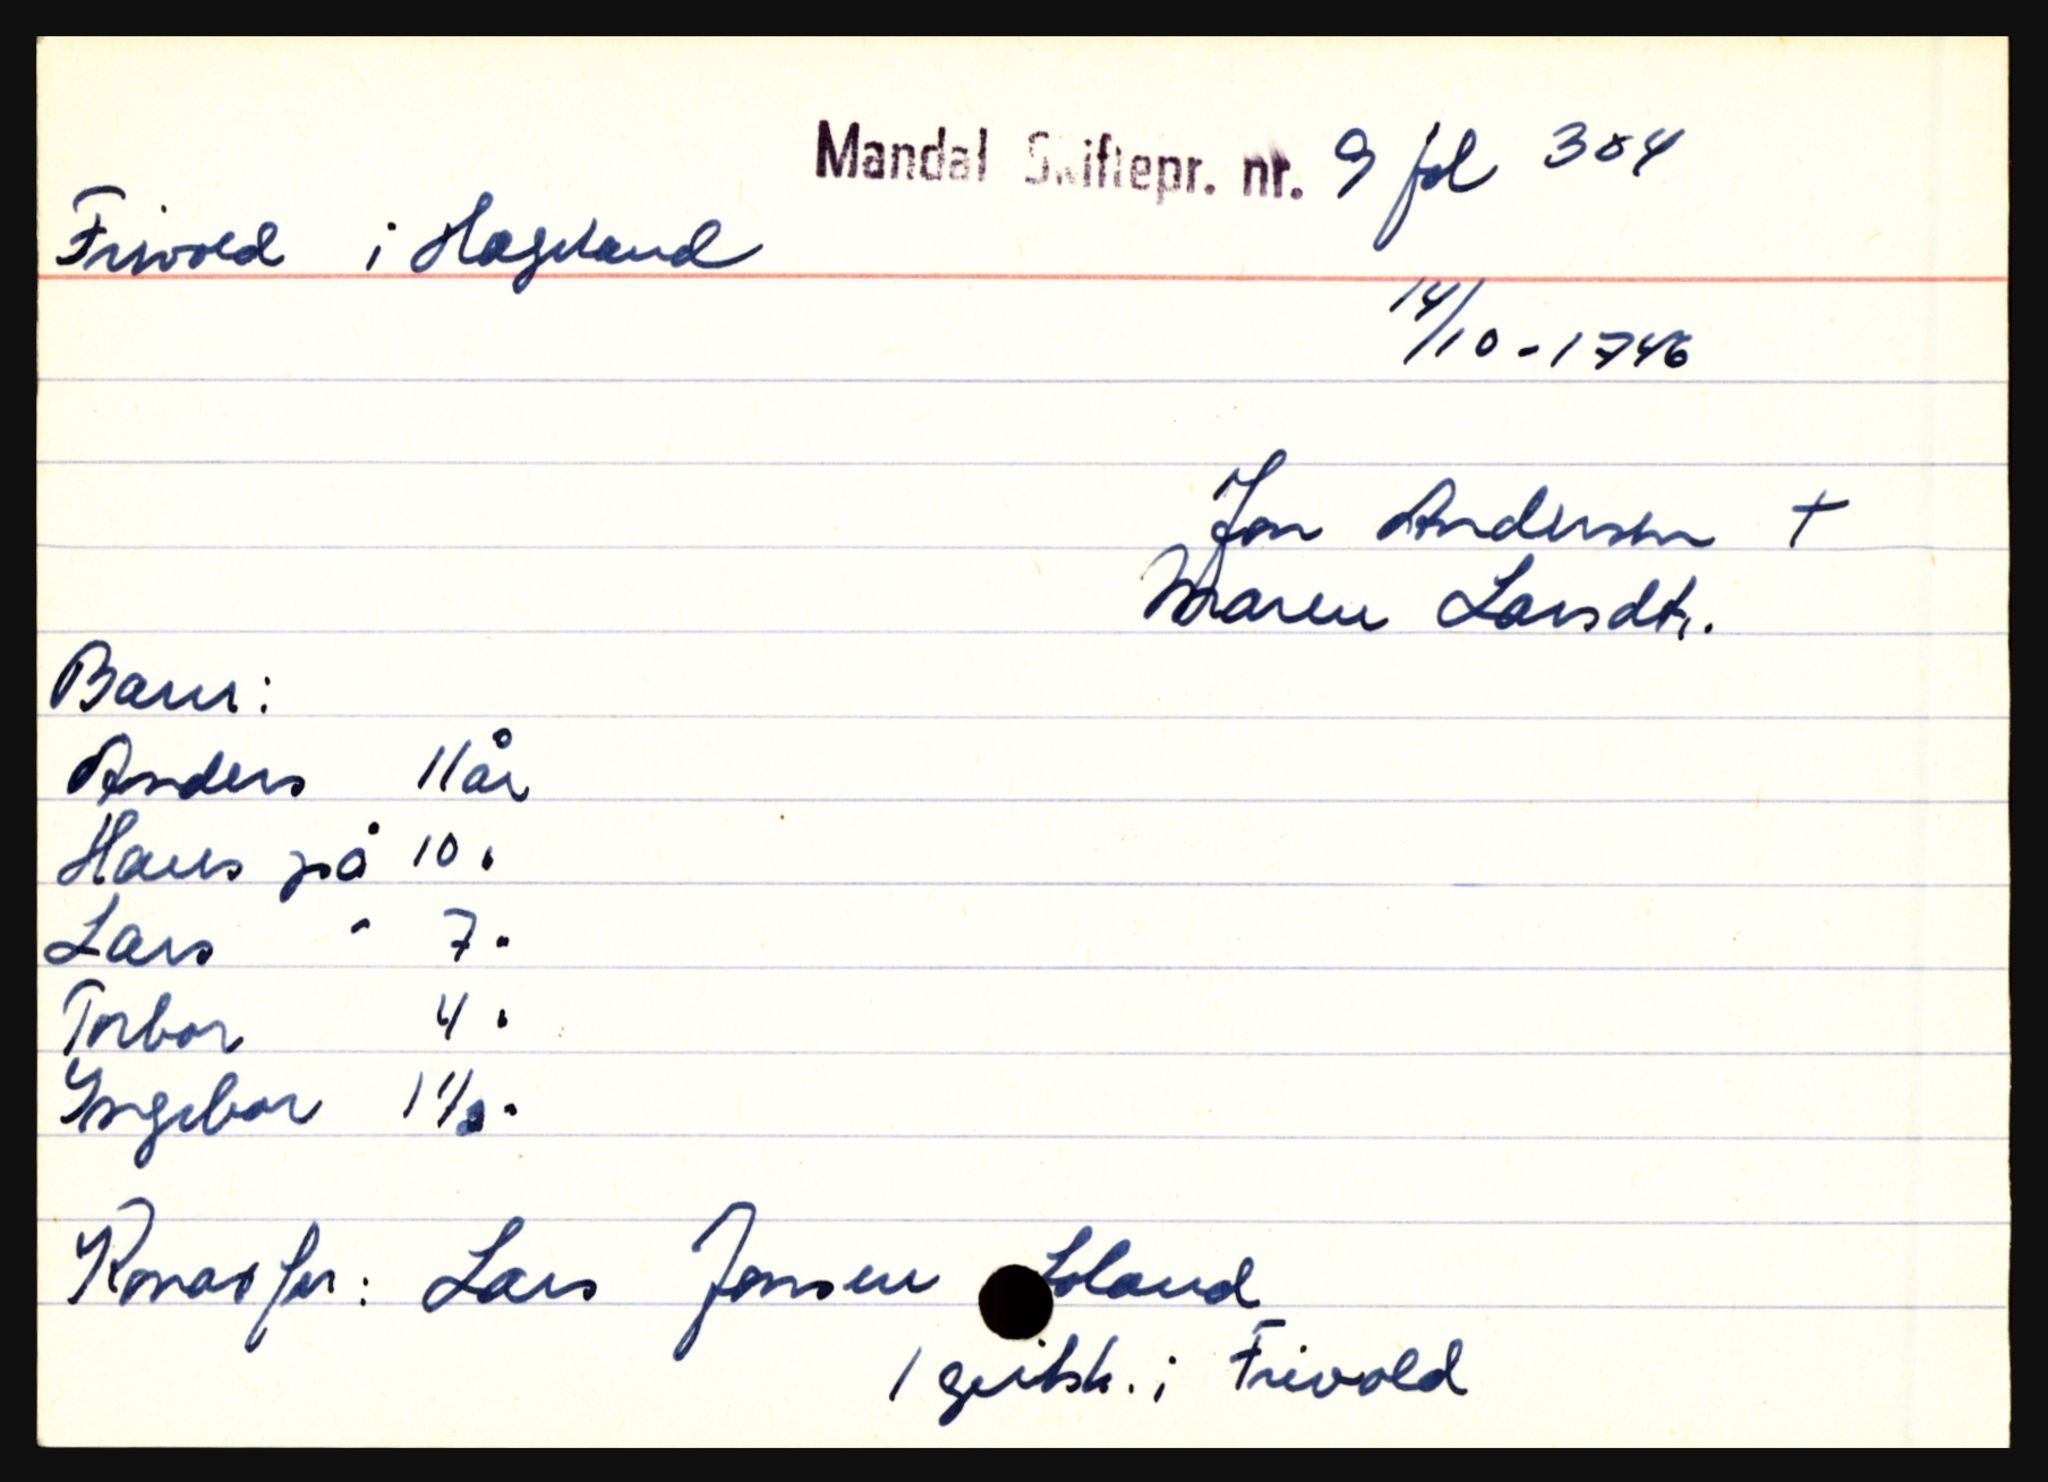 Mandal Skiftepr. nr. 9 fol 384
Frivold i Hægeland
14/10-1746
Jon Andersen +
Maren Larsdtr.
Barn:
Anders 11 år
Hans på 10 "
Lars " 7 "
Torbor 4 "
Ingebor 1 1/2 "
Konas far: Lars Jensen Loland
1 geitsk. i Frivold